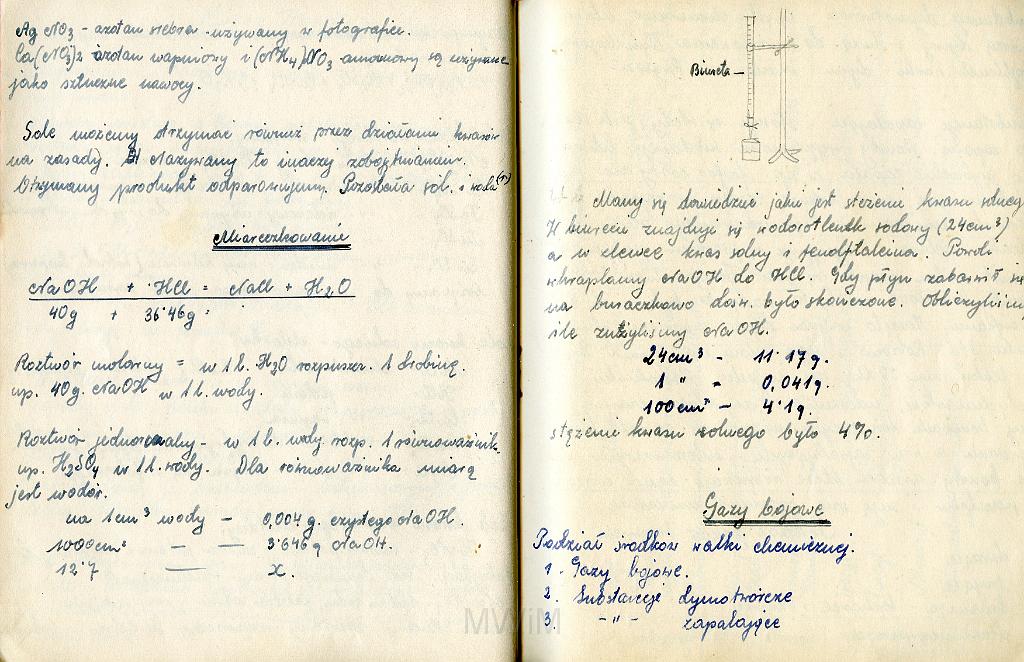 AgNO3 - azotan srebra - używany w fotografice.
Ca(NO3)2 azotan wapniowy i (NH4)NO3 amonowy są używane
jako sztuczne nawozy.
Sole możemy otrzymać również przez działanie kwasów
na zasady. Nazywamy to inaczej zobojętnianiem.
Otrzymany produkt odparowujemy. Pozostała sól i woda
Miareczkowanie
NaOH + HCl = NaCl + H2O
40g + 36·46g
Roztwór molarny = w 1 l. H2O rozpuszcz. 1 drobinę.
np. 40g. NaOH w 1 l. wody.
Roztwór jednonormalny - w 1 l. wody rozp. 1 równoważnik.
np. H2SO4 w 1 l. wody. Dla równoważnika miarą
jest wodór.
na 1 cm3 wody - 0,004 g. czystego NaOH.
1000cm3 — — 3·646 g NaOH.
12·7 — x.
Biureta -
Mamy się dowiedzieć jakie jest stężenie kwasu solnego
W biurecie znajduje się wodorotlenek sodowy (24cm3)
a w zlewce kwas solny i fenolftaleina. Powoli
wkraplamy NaOH do HCl. Gdy płyn zabarwił się
na buraczkowo dośw. było skończone. Obliczyliśmy
ile zużyliśmy NaOH.
24cm3 - 11·17g.
1 " - 0,041g.
100cm3 - 4·1g.
stężenie kwasu solnego było 4%.
Gazy bojowe
Podział środków walki chemicznej.
1. Gazy bojowe.
2. Substancje dymotwórcze
3. -"- zapalające
MWiM